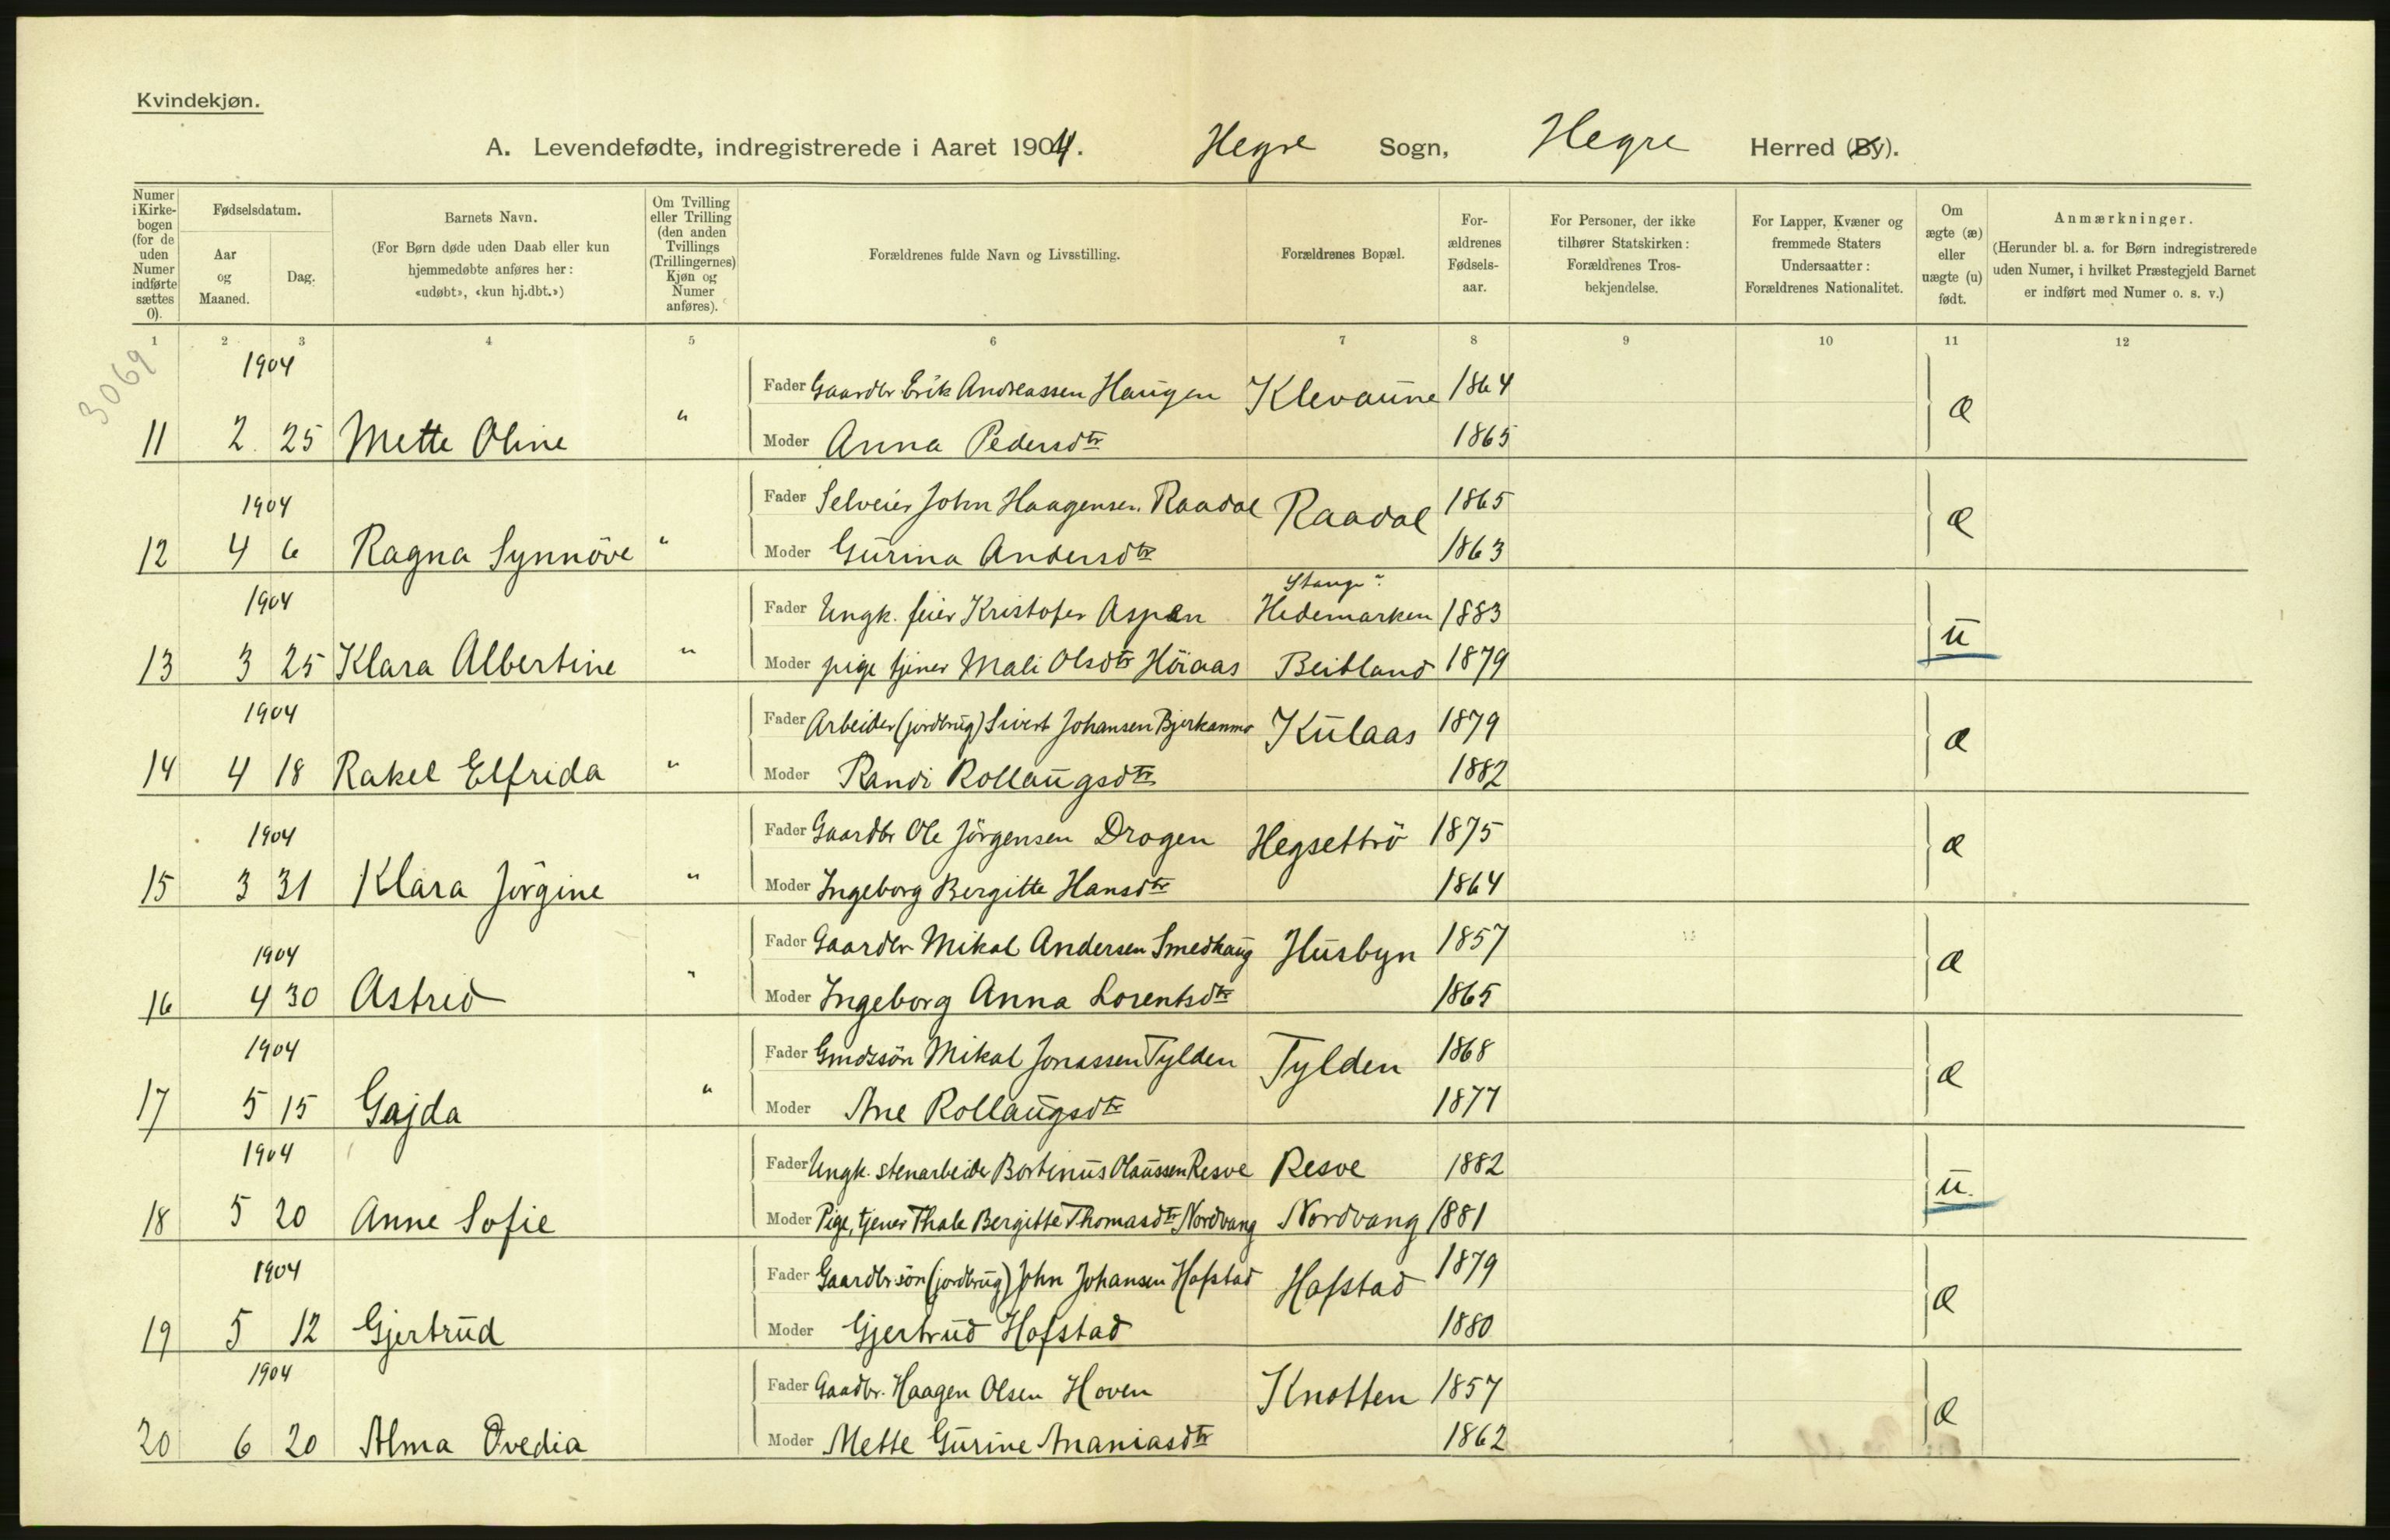 Kvindekjøn.
A. Levendefødte, indregistrerede i Aaret 1904. Hegre Sogn, Hegre Herred (By).
Numer i Kirkebogen (for de uden Numer indførte sættes 0).
Fødselsdatum.
Aar og Maaned.
Dag.
Barnets Navn.
(For Børn døde uden Daab eller kun
hjemmedøbte anføres her:
«udøbt», «kun hj.dbt.»)
Om Tvilling
eller Trilling
(den anden
Tvillings
(Trillingernes)
Kjøn og
Numer
anføres).
Forældrenes fulde Navn og Livsstilling.
Forældrenes Bopæl.
For-
ældrenes
Fødsels-
aar.
For Personer, der ikke
tilhører Statskirken:
Forældrenes Tros-
bekjendelse.
For Lapper, Kvæner og
fremmede Staters
Undersaatter:
Forældrenes Nationalitet.
Om
ægte (æ)
eller
uægte (u)
født.
Anmærkninger.
(Herunder bl. a. for Børn indregistrerede
uden Numer, i hvilket Præstegjeld Barnet
er indført med Numer o. s. v.)
1 2 3 4 5 6 7 8 9 10 11 12
3069
1904
Fader Gaardbr Erik Andreassen Haugen Klevaune 1864
11 2. 25 Mette Oline " Moder Anna Pedersdtr 1865 æ
1904
Fader Selveier John Haagensen Raadal Raadal 1865
12 4 6 Ragna Synnöve " Moder Gurina Andersdtr 1863 æ
1904
Stange
Fader Ungk. feier Kristofer Aspen Hedemarken 1883
13 3 25 Klara Albertine " Moder pige tjener Mali Olsdtr Höiaas Beitland 1879 u
1904
Fader Arbeider (jordbrug) Sivert Johansen Bjerkanmo Kulaas 1879
14 4 18 Rakel Elfrida " Moder Randi Rollaugsdtr 1882 æ
1904
Fader Gaardbr Ole Jörgensen Drogen Hegsettrö 1875
15 3 31 Klara Jörgine " Moder Ingeborg Bergitte Hansdtr 1864 æ
1904
Fader Gaardbr Mikal Andersen Smedhaug Husbyn 1857
16 4 30 Astrid " Moder Ingeborg Anna Lorentsdtr 1865 æ
1904
Fader Gmdssön Mikal Jonassen Tylden Tylden 1868
17 5 15 Gajda " Moder Ane Rollaugsdtr 1877 æ
1904
Fader Ungk. stenarbeider Bortinus Olaussen Resve Resve 1882
18 5 20 Anne Sofie Moder Pige, tjener Thale Bergitte Thomasdtr Nordvang Nordvang 1881 u.
1904
Fader Gaardbr.sön (jordbrug) John Johansen Hofstad Hofstad 1879
19 5 12 Gjertrud Moder Gjertrud Hofstad 1880 æ
1904
Fader Gaadbr. Haagen Olsen Hoven Knotten 1857
20 6 20 Alma Ovedia Moder Mette Gurine Ananiasdtr 1862 æ